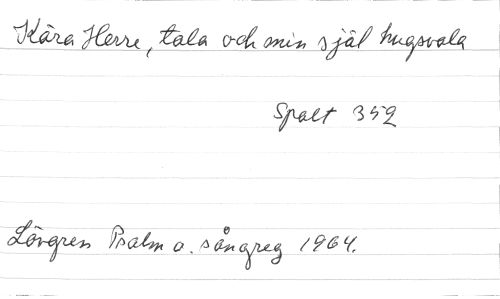 Kära Herre, tala och min själ hugsvala
Spalt 352
Lövgren Psalm o. sångreg 1964.